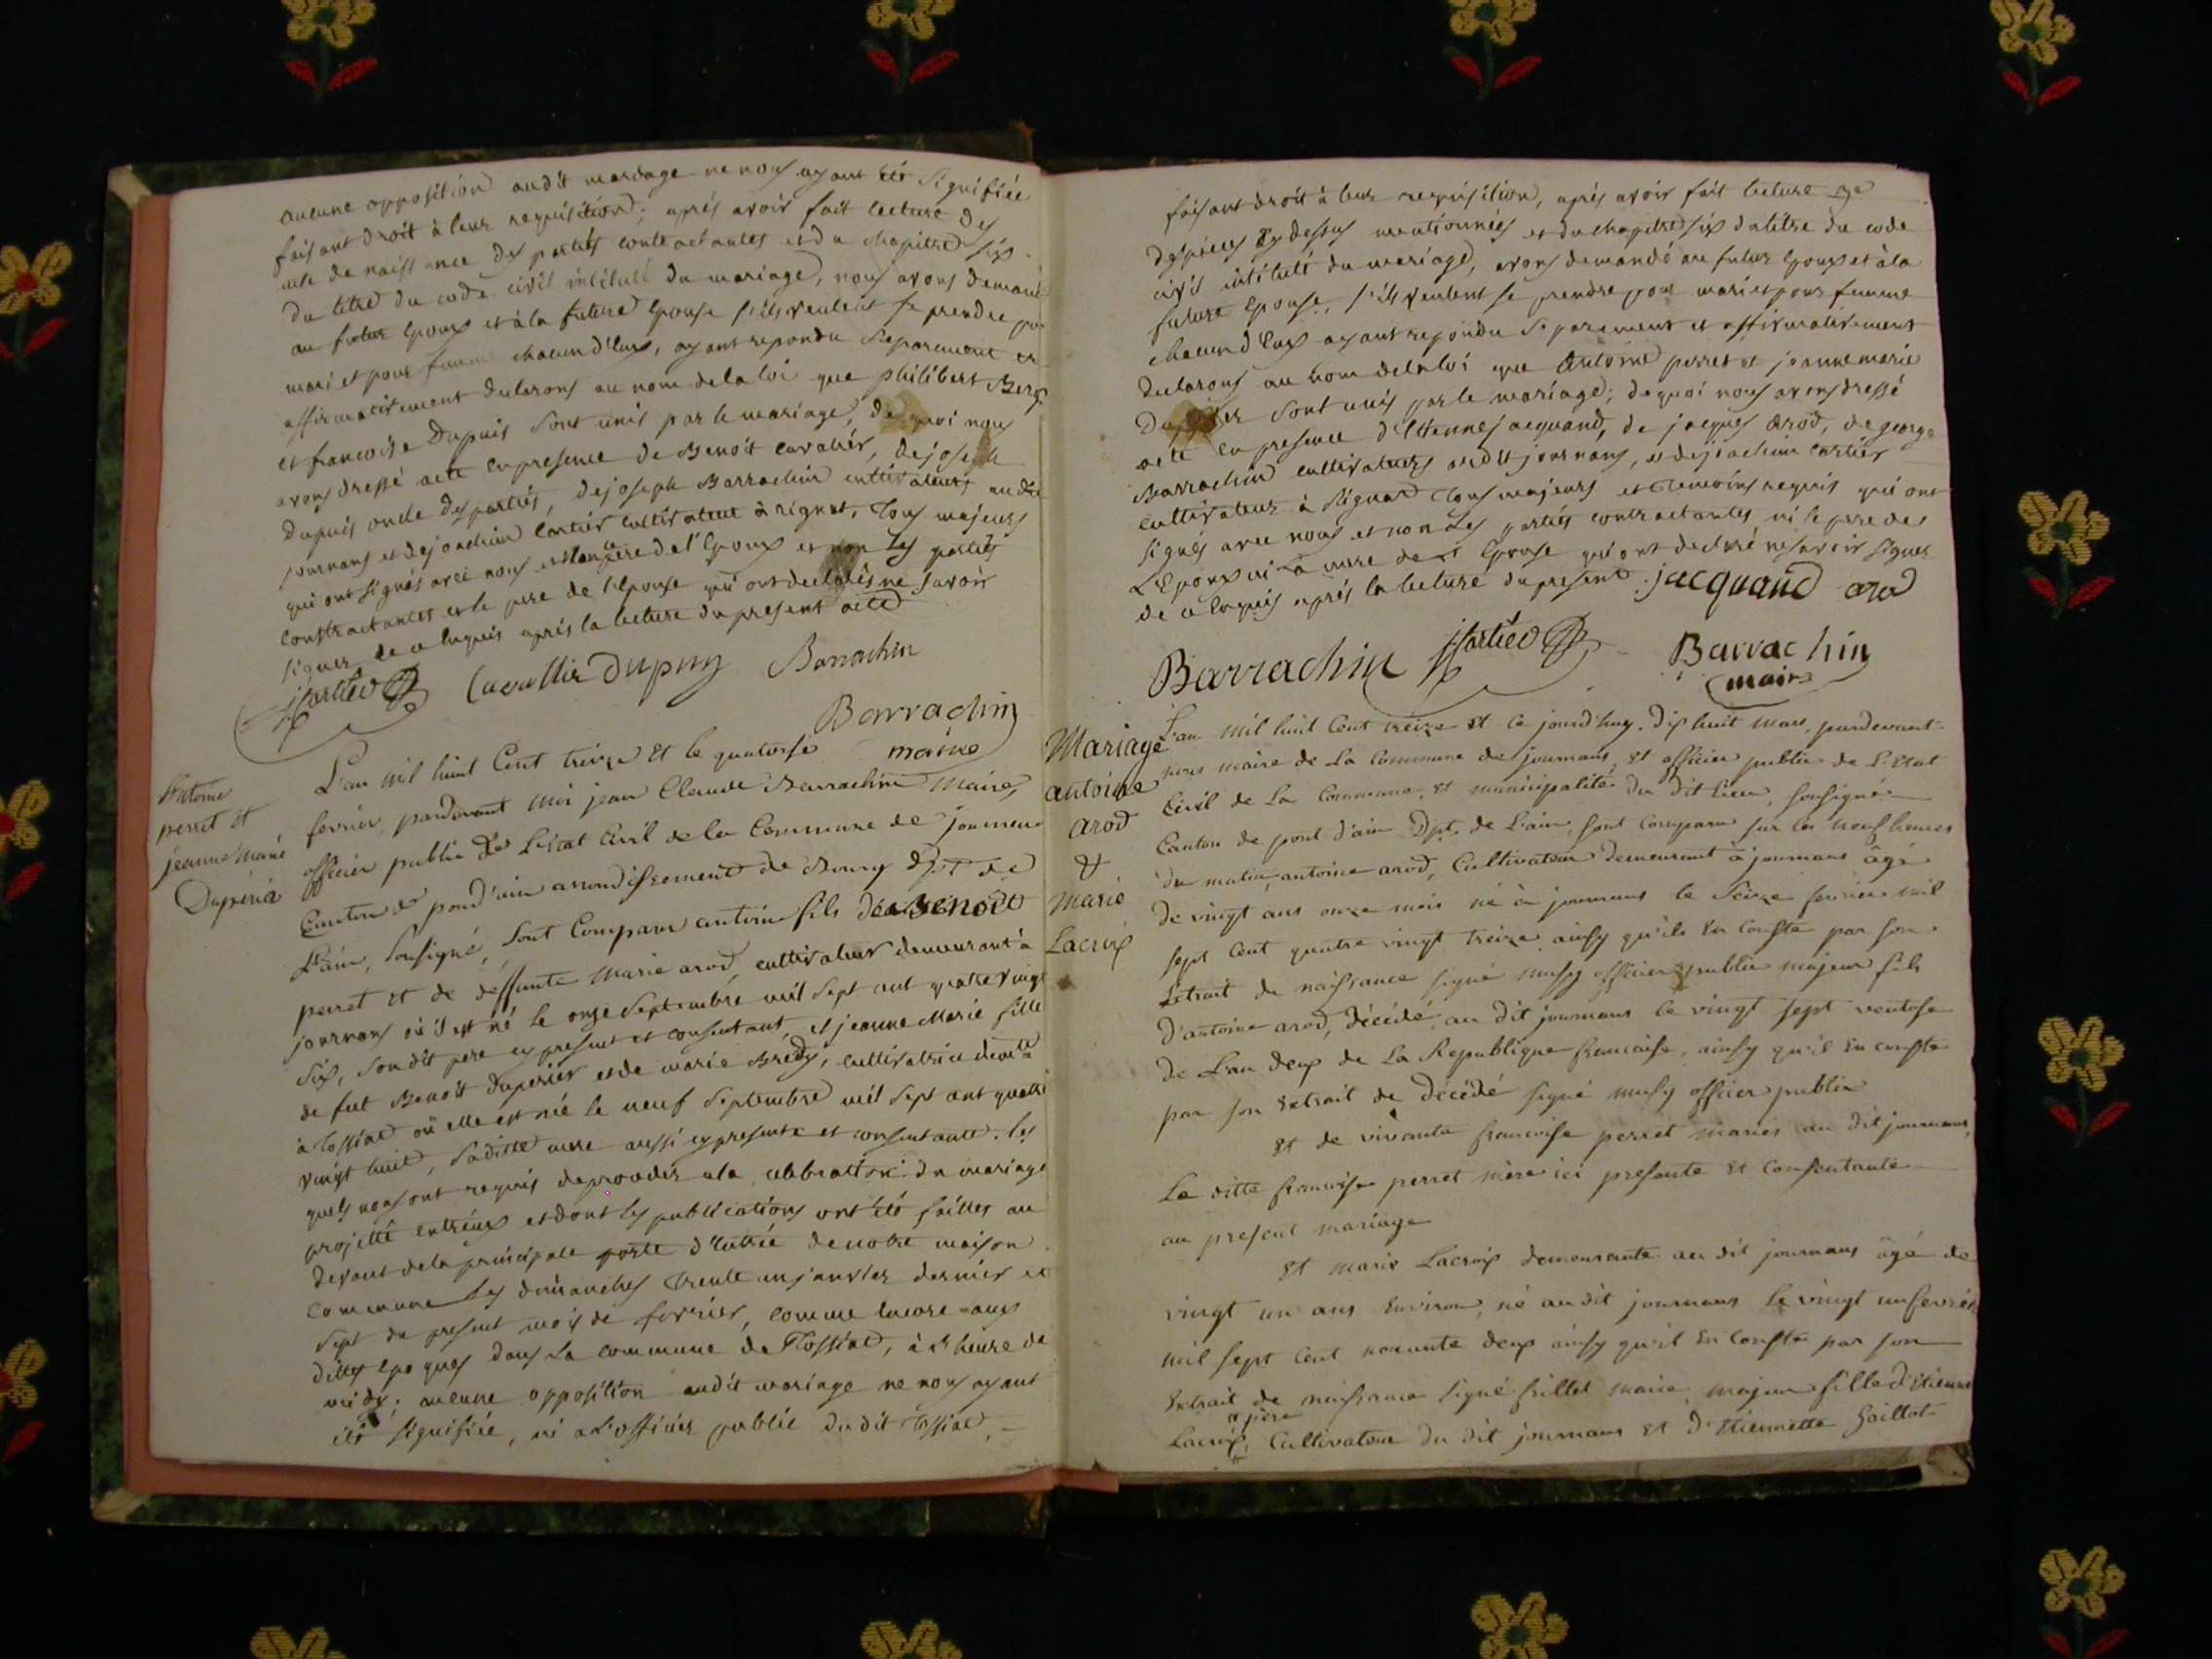 aucune opposition audit mariage ne nous ayant été signifiée
faisant droit à leur requisition; après avoir fait lecture des
acte de naissance des parties contractantes et du chapitre six
du titre du code civil intitulé du mariage, nous avons demandé
au futur Epoux et à la future Epouse s'ils veulent se prendre pour
mari et pour femme chacun d'Eux, ayant repondu Separement et
affirmativement declarons au nom de la loi que philibert
et francoise Dupuis sont unis par le mariage, de quoi nous
avons dressé acte en presence de Benoit cavalier, de joseph
Dupuis oncle des parties, de joseph Barrachin cultivateurs audit
journans et de joachim Cartier cultivateur à rignat, tous majeurs
qui ont signés avec nous et le pere de l'Epoux et non les parties
contractantes et le pere de l'Epouse qui ont declarés ne savoir
signer de ce enquis après la lecture du present acte
jCartier Cavallier Dupuy Barrachin
Barrachin
maire
Antoine
perret et
jeanne Marie
Duperier
L'an mil huit Cent treize et le quatorse
fevrier, pardevant moi jean Claude Barrachin Maire,
officier public de L'état Civil de la Commune de journans
Canton de pond'ain arrondissement de Bourg dpt de
L'ain, Soussigné, Sont Comparu antoine fils de Benoit
perret et de deffunte Marie arod, cultivateur demeurant à
journans où il est né le onze Septembre mil sept cent quatre vingt
six, son dit pere cy present et consentant, et jeanne Marie fille
de feu Benoit Duperier et de marie Brédy, cultivatrice demte
à Tossiat où elle est née le neuf Septembre mil sept cent quatre
vingt huit, Saditte mere aussi cy presente et consentante. les
quels nous ont requis de proceder a la celebration du mariage
projetté entréux et dont les publications ont été faittes au
devant de la principale porte d'Entrée de notre maison
commune les dimanches trente un janvier dernier et
sept du present mois de fevrier, comme Encore aux
dittes Epoques dans la commune de Tossiat, à l'heure de
midy; aucune opposition audit mariage ne nous ayant
été signifiée, ni a l'officier public du dit Tossiat,
faisant droit à leur requisition, après avoir fait lecture
des pieces cy dessus mentionnées et du chapitre six du titre du code
civil intitulé du mariage, avons demandé au futur Epoux et à la
future Epouse, s'ils veulent se prendre pour mari et pour femme
chacun d'Eux ayant repondu Separement et affirmativement
declarons au nom de la loi que Antoine perret et jeanne marie
Duperier sont unis par le mariage; de quoi nous avons dressé
acte en presence d'Etienne jacquand, de jacques arod, de george
Barrachin cultivateurs audit journans, et de joachim cartier
cultivateur à Rignat tous majeurs et temoins requis qui ont
signés avec nous et non les parties contractantes ni le pere de
L'Epoux ni la mere de l'Epouse qui ont declaré ne savoir signer
de ce enquis après la lecture du present. jacquand arod
Barrachin jCartier Barrachin
maire
Mariage
antoine
arod
&
Marie
Lacroix
L'an mil huit Cent treize et ce jourd'huy dix huit mars, pardevant
nous maire de La Commune de journans, et officier public de L'Etat
Civil de La Commune et municipalité du dit Lieu, soussigné
Canton de pont d'ain Dpt de L'ain, sont comparu sur les neuf heures
du matin, antoine arod, Cultivateur demeurant à journans âgé
de vingt ans onze mois né à journans le Seize fevrier mil
sept Cent quatre vingt treize ainsy qu'ils En Conste par son
Extrait de naissance signé musy officier public majeur fils
d'antoine arod, décédé au dit journans le vingt sept ventose
de L'an deux de La Republique francaise, ainsy qu'il En conste
par son Extrait de décédé signé musy officier public
et de vivante francoise perret mariés au dit journans,
La ditte francoise perret mère ici presente et Consentante
au present mariage
Et Marie Lacroix demeurante au dit journans âgé de
vingt un ans Environ, né audit journans le vingt un fevrier
mil sept Cent nonante deux ainsy qu'il En Conste par son
Extrait de naissance signé frillet maire, majeur fille d'Etienne
père
Lacroix, Cultivateur du dit journans et d'Etiennette Gaillot